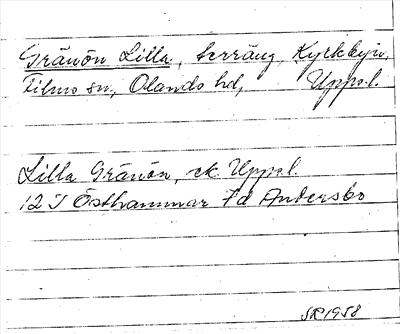 Gränön Lilla, terräng, Kyrkbyn,
Films sn, Olands hd, Upps.l.
Lilla Gränön, ek Uppsl.
12 I Östhammar 7d Andersbo
SR 1958